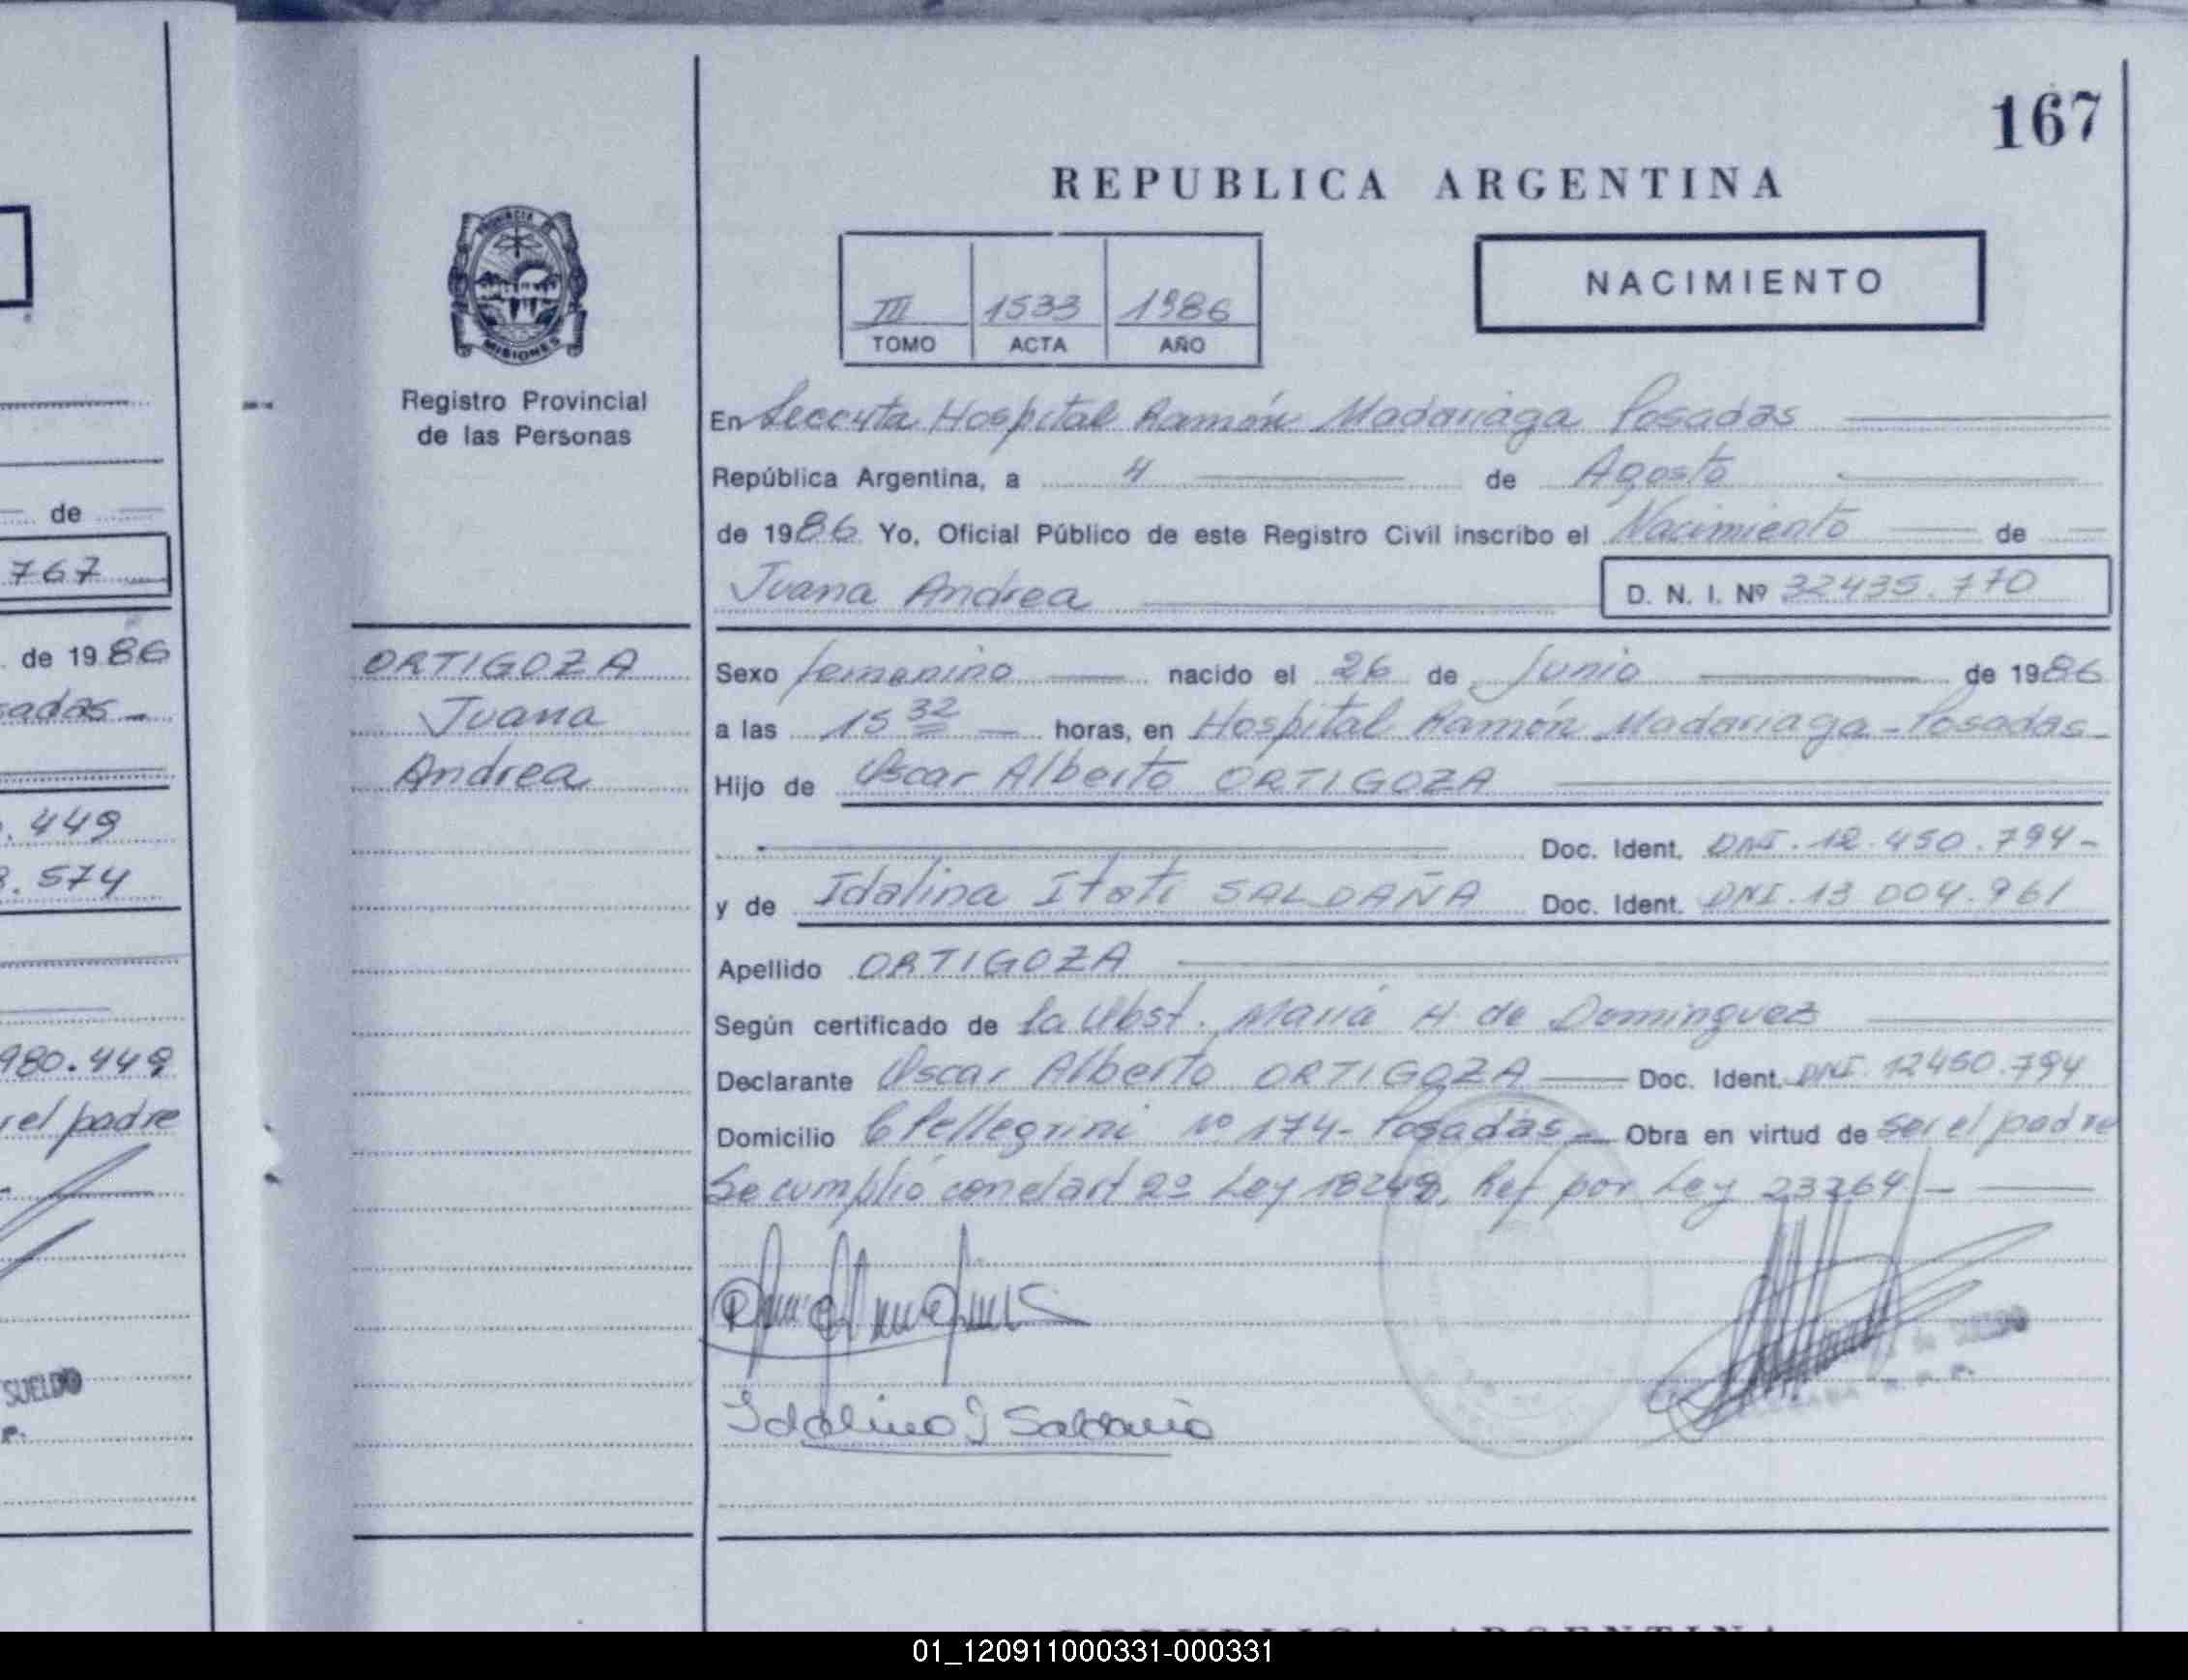 167
REPUBLICA ARGENTINA
NACIMIENTO
III 1533 1986
TOMO ACTA AÑO
PROVINCIA DE
MISIONES
Registro Provincial
de las Personas
En Hospital Ramón Madariaga Posadas
República Argentina, a 4 de Agosto
de 1986 Yo, Oficial Público de este Registro Civil inscribo el Nacimiento de
Juana Andrea D. N. I. Nº 32435.770
ORTIGOZA
Juana
Andrea
Sexo femenino nacido el 26 de Junio de 1986
a las 15 32 horas, en Hospital Ramón Madariaga - Posadas -
Hijo de Oscar Alberto ORTIGOZA
Doc. Ident. DNI. 12.450.794 -
y de Idalina Itati SALDAÑA Doc. Ident. DNI. 13 004.961
Apellido ORTIGOZA
Según certificado de la Obst. Maria H de Dominguez
Declarante Oscar Alberto ORTIGOZA Doc. Ident. DNI 12450.794
Domicilio C Pellegrini Nº 174 - Posadas - Obra en virtud de ser el padre
Se cumplió con el art 2º Ley 18248, Ref por Ley 23264 -
Idalina I Saldaña
de
767
de 1986
sadas -
.449
.574
980.449
el padre
SUELDO
REPUBLICA ARGENTINA
01_120911000331-000331